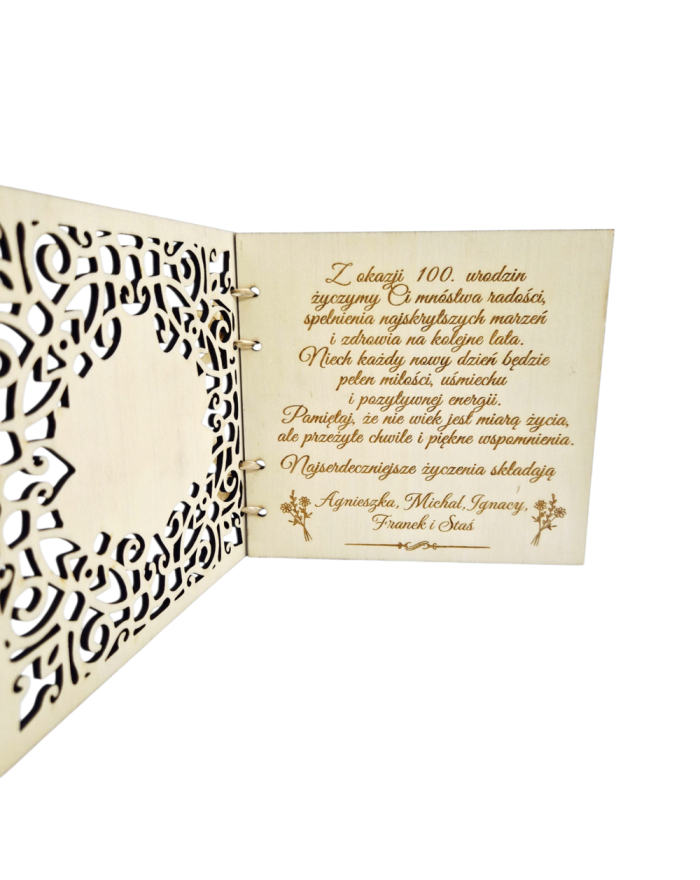 Z okazji 100. urodzin
życzymy Ci mnóstwa radości,
spełnienia najskrytszych marzeń
i zdrowia na kolejne lata.
Niech każdy nowy dzień będzie
pełen miłości, uśmiechu
i pozytywnej energii.
Pamiętaj, że nie wiek jest miarą życia,
ale przeżyte chwile i piękne wspomnienia.
Najserdeczniejsze życzenia składają
Agnieszka, Michał, Ignacy,
Franek i Staś